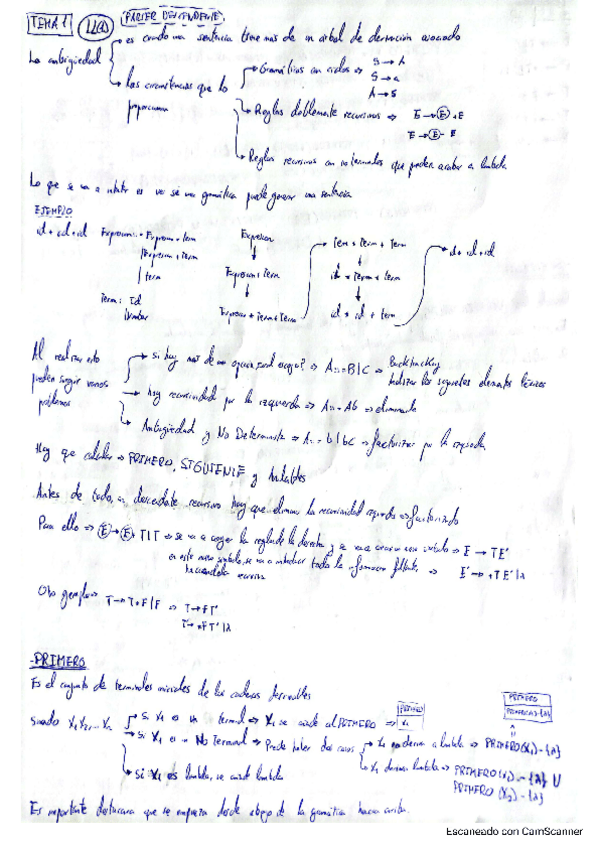 TEMA 1 LL(1) PARSER DESCENDENTE
La ambigüedad
es cuando una sentencia tiene mas de un arbol de derivación asociado
Las circunstancias que lo proporcionan
Gramáticas con ciclos ⇒ S → A
S → a
A → S
Reglas doblemente recursivas ⇒ E → E + E
E → E - E
Reglas recursivas con no terminales que pueden acabar a lambda
Lo que se va a intentar es ver si una gramática puede generar una sentencia
EJEMPLO
id + id + id
Expresion: Expresion + Term
| Expresion + Term
| term
Term: Id
| Number
Expresion
Expresion + Term
Expresion + Term + Term
Term + Term + Term
id + Term + Term
id + id + Term
id + id + id
Al realizar esto pueden surgir varios problemas
si hay mas de una opcion, cual escoger? ⇒ A::=B|C ⇒ Backtracking
Analizar los siguientes elementos léxicos
hay recursividad por la izquierda ⇒ A::= Ab ⇒ eliminarla
Ambigüedad y No Determinista ⇒ A::= b|bC ⇒ factorizar por la izquierda
Hay que calcular ⇒ PRIMERO, SIGUIENTE y Anulables
Antes de todo, en descendente recursivo hay que eliminar la recursividad izquierda ⇒ factorizando
Para ello ⇒ E → E + T|T ⇒ se va a coger la regla de la derecha y se va a crear un símbolo ⇒ E → TE'
en este nuevo símbolo, se va a introducir toda la informacion faltante, haciendola recursiva ⇒ E' → +TE'|λ
Otro ejemplo ⇒ T → T*F|F ⇒ T → FT'
T' → *FT'|λ
-PRIMERO
Es el conjunto de terminales iniciales de las cadenas derivables
Siendo X1 X2 ... Xn
si X1 es un terminal ⇒ X1 se añade al PRIMERO ⇒
PRIMERO
X1
si X1 es un No Terminal ⇒ Puede haber dos casos
X1 no deriva a lambda ⇒ PRIMERO(X1) - {λ}
PRIMERO
PRIMERO(X1) - {λ}
X1 deriva lambda ⇒ PRIMERO(X1) - {λ} U
PRIMERO (X2) - {λ}
si X1 es lambda, se añade lambda
Es importante destacar que se empieza desde abajo de la gramática hacia arriba.
Escaneado con CamScanner